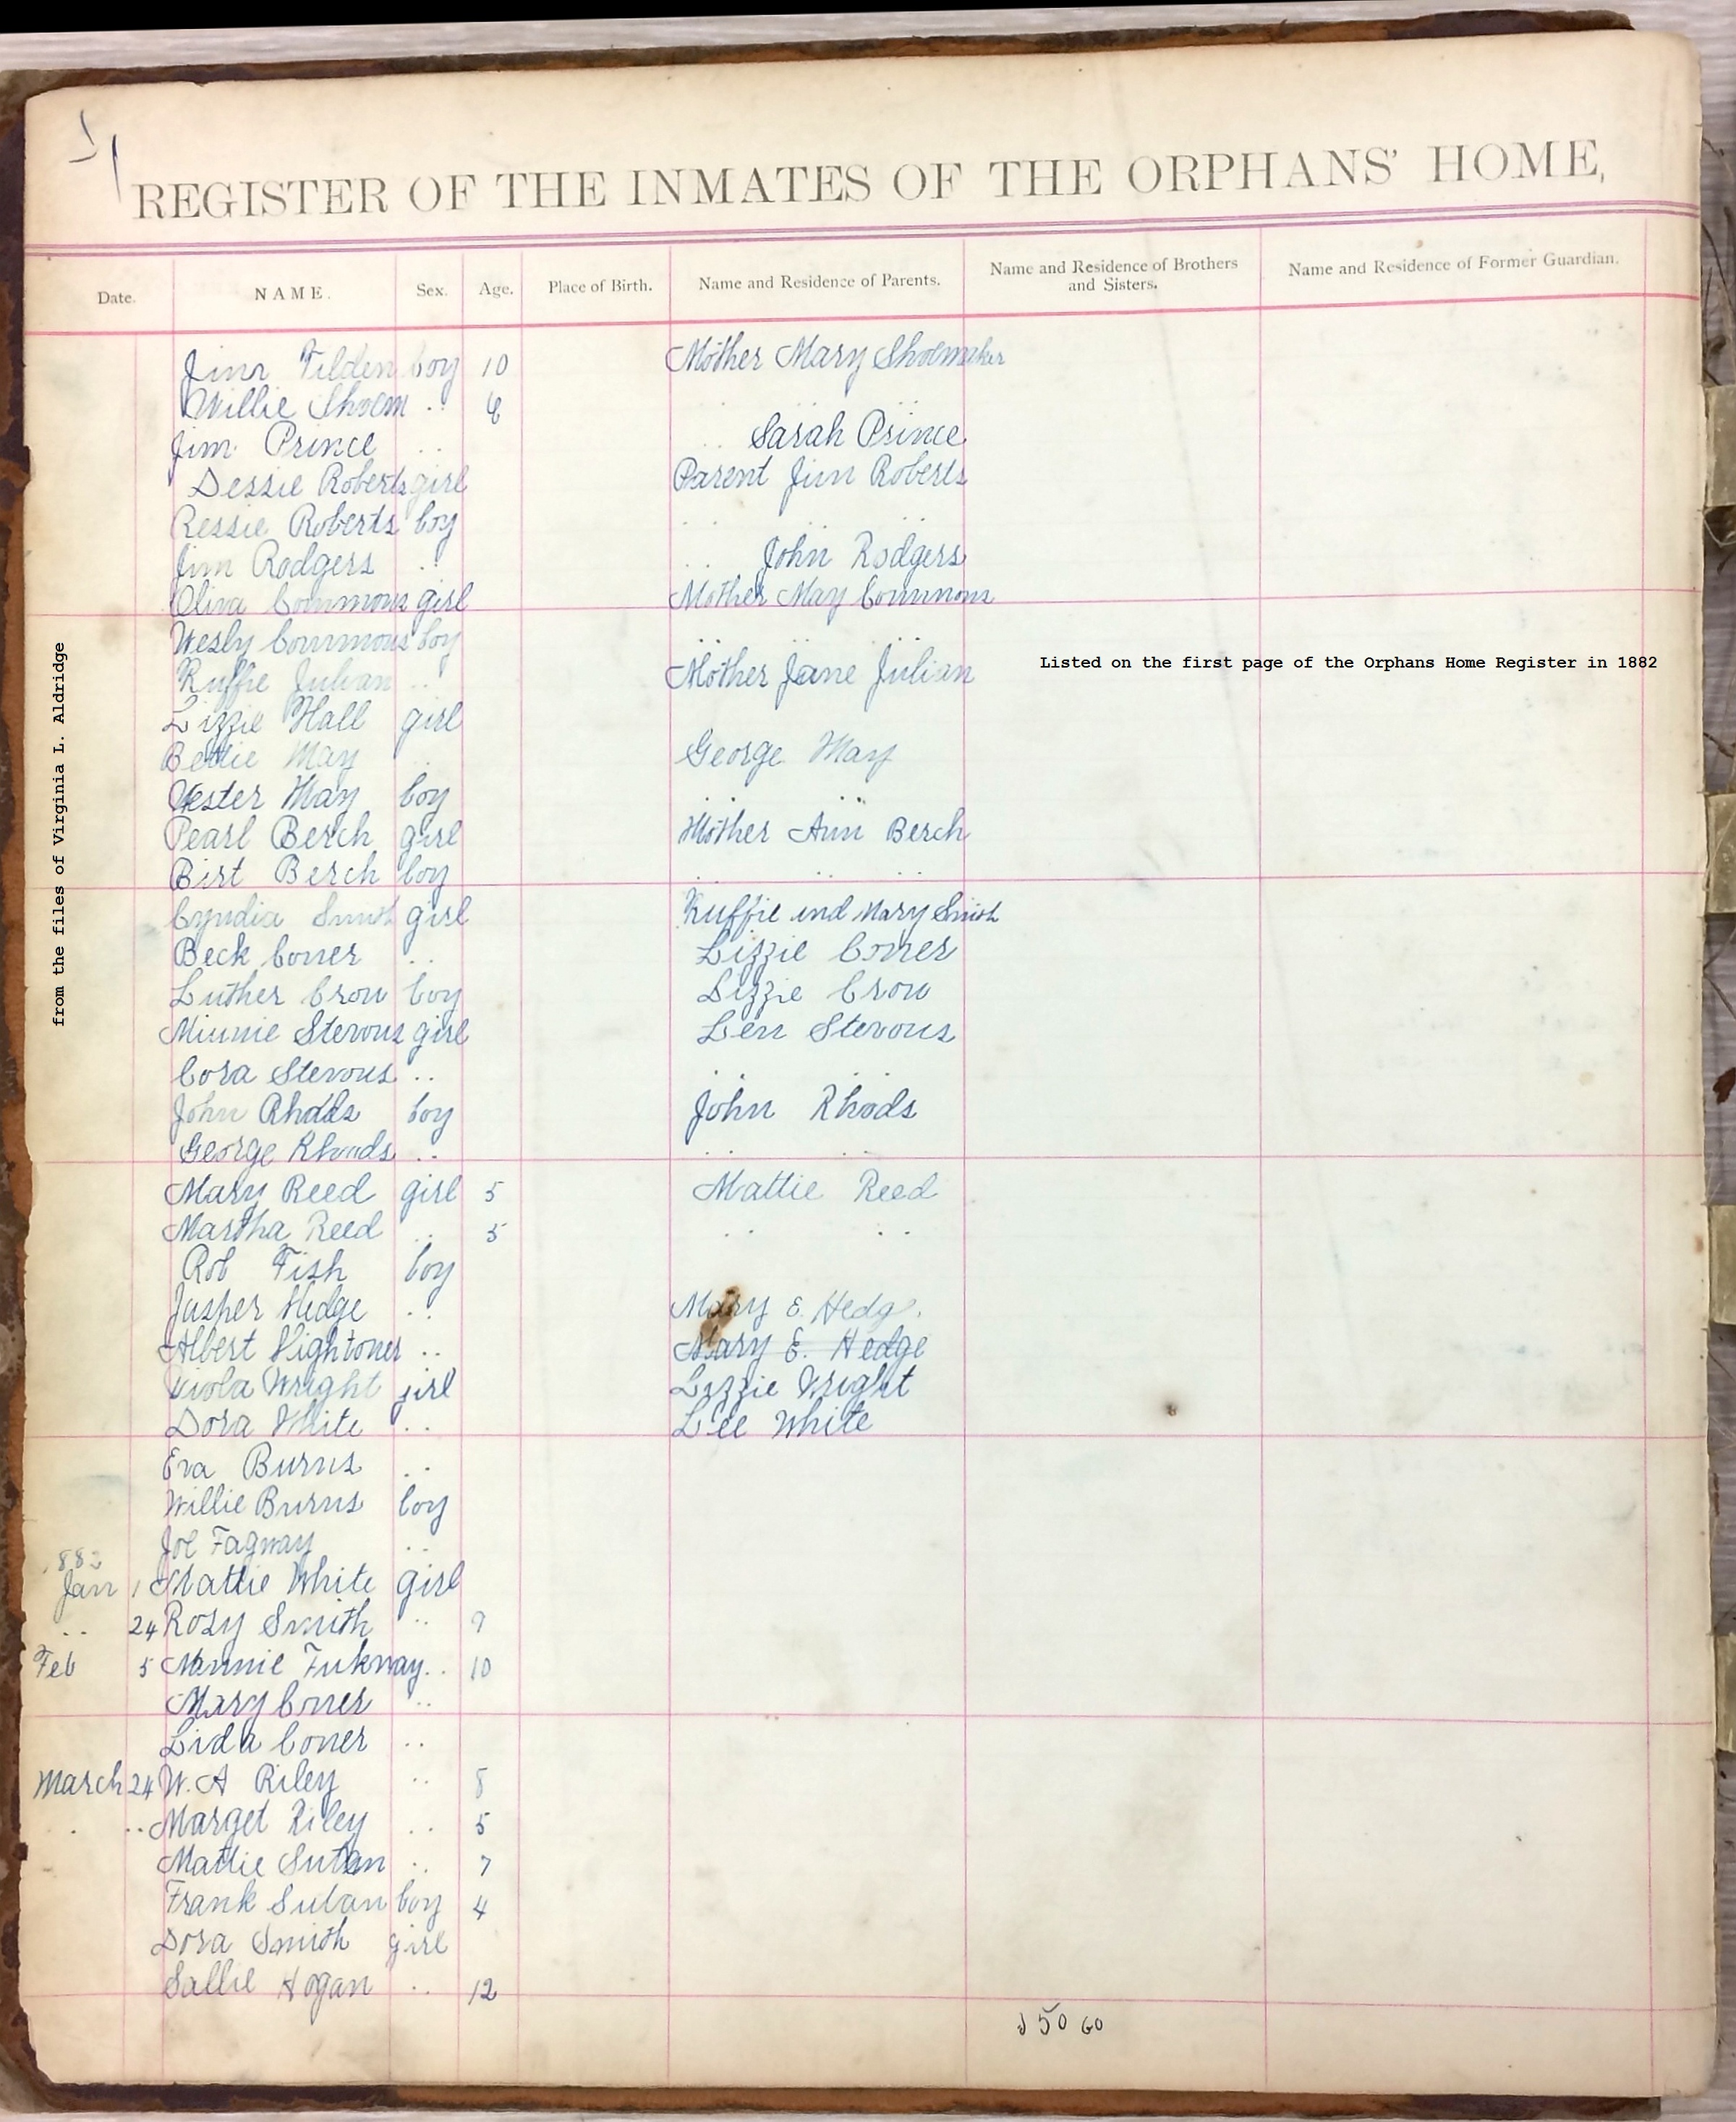 REGISTER OF THE INMATES OF THE ORPHANS' HOME,
Date. NAME. Sex. Age. Place of Birth. Name and Residence of Parents. Name and Residence of Brothers and Sisters. Name and Residence of Former Guardian.
Jim Tilden boy 10 Mother Mary Shoemaker
Willie Shoem .. .. .. ..
Jim Prince .. .. Sarah Prince
Dessie Roberts girl Parent Jim Roberts
Ressie Roberts boy .. .. ..
Jim Rodgers .. .. John Rodgers
Oliva Commons girl Mother May Commons
Wesly Commons boy .. .. ..
Ruffie Julian .. Mother Jane Julian
Listed on the first page of the Orphans Home Register in 1882
from the files of Virginia L. Aldridge
Lizzie Hall girl
Bettie May . George May
Vester May boy .. ..
Pearl Berch girl Mother Ann Berch
Birt Berch boy . .. ..
Cyndia Smith girl Ruffie and Mary Smith
Beck Coner .. Lizzie Coner
Luther Crow boy Lizzie Crow
Minnie Stevous girl Len Stevous
Cora Stevous .. . .
John Rhods boy John Rhods
George Rhoads .. .. ..
Mary Reed girl 5 Mattie Reed
Martha Reed .. 5 .. ..
Rob Fish boy
Jasper Hedge .. Mary E. Hedg.
Albert Hightoner .. Mary E. Hedge
Viola Wright girl Lizzie Wright
Dora White .. Lee White
Eva Burns ..
Willie Burns boy
Joe Fagway ..
1882
Jan 1 Mattie White girl
.. 24 Rosy Smith .. 9
Feb 5 Minnie Fukway .. 10
Mary Coner ..
Lida Coner ..
March 24 W. A Riley .. 8
. .. Marget Riley .. 5
Mattie Sutan .. 7
Frank Sutan boy 4
Dora Smith girl
Sallie Hogan .. 12
50 60